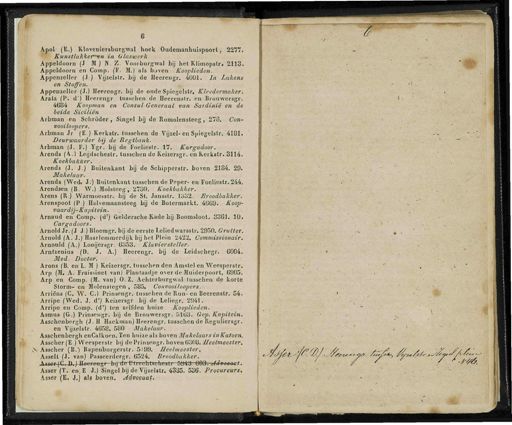 6
Apol (E.) Kloveniersburgwal hoek Oudemanhuispoort, 2277.
Kunstlakker en in Glaswerk
Appeldoorn (J M) N. Z. Voorburgwal bij het Klimopstr. 2113.
Appeldoorn en Comp. (F. M.) als boven Kooplieden.
Appenzeller (J) Vijzelstr. bij de Heerengr. 4001. In Lakens
en Stoffen.
Appenzeller (J.) Heerengr. bij de oude Spiegelstr, Kleedermaker.
Arata (P. d') Heerengr. tusschen de Heerenstr. en Brouwersgr.
4684 Koopman en Consul Generaal van Sardinië en de
beide Siciliën
Arbman en Schröder, Singel bij de Romolensteeg, 278. Con-
vooiloopers.
Arbman Jr (E) Kerkstr. tusschen de Vijzel- en Spiegelstr. 4181.
Deurwaarder bij de Regtbank.
Arbman (J. F.) Ygr. bij de Foeliestr. 17. Kargadoor.
Arends (A.) Lapdischestr. tusschen de Keizersgr. en Kerkstr. 3114.
Koekbakker.
Arends (J. J.) Buitenkant bij de Schipperstr. boven 2184. 29.
Makelaar.
Arends (Wed. J.) Buitenkant tusschen de Peper- en Foeliestr. 244.
Arendsen (B. W.) Molsteeg, 2730. Koekbakker.
Arens (R.) Warmoesstr. bij de St. Jansstr. 1352. Broodbakker.
Arenspoot (P) Halvemaansteeg bij de Botermarkt. 4669. Koop-
vaardij-Kapitein.
Arnaud en Comp. (d') Geldersche Kade bij Boomsloot. 3361. 19.
Cargadoors.
Arnold Jr. (J J) Bloemgr. bij de eerste Leliedwarsstr. 2950. Grutter.
Arnold (A. J.) Haarlemmerdijk bij het Plein 2422. Commissionair.
Arnauld (A.) Looijersgr 6353. Klaviersteller.
Arntzenius (D. J. A.) Heerengr. bij de Leidschegr. 6604.
Med. Doctor.
Arons (B. en L M) Keizersgr. tusschen den Amstel en Weesperstr.
Arp (M. A. Fraissinet van) Plantaadje over de Muiderpoort, 6905.
Arp en Comp. (M. van) O. Z. Achterburgwal tusschen de korte
Storm- en Molensteeg, 585. Convooiloopers.
Arriëns (C. W. C.) Prinsengr. tusschen de Run- en Beerenstr. 54.
Arripe (Wed. J. d') Keizersgr bij de Leliegr. 2941.
Arripe en Comp (d') ten zelfden huize Kooplieden.
Asmus (G.) Prinsengr. bij de Brouwersgr. 5163. Gep. Kapitein.
Aschenbergh (J. H Hackman) Heerengr. tusschen de Reguliersgr.
en Vijzelstr. 4658, 580 Makelaar.
Asschenbergh en Calkoen, Ten huize als boven Makelaars in Katoen.
Asscher (E) Weesperstr bij de Prinsengr. boven 6308. Heelmeester.
Asscher (B.) Rapenburgerstr 5-99. Heelmeester.
Asselt (J. van) Passeerdergr. 6524. Broodbakker.
Asser (C. D.) Heerengr bij de Utrechtschestr 5043. 603. Advocaat.
Asser (T. en E J.) Singel bij de Vijzelstr. 4335. 536. Procureurs.
Asser (E. J.) als boven. Advocaat.
6
Asser (C. D.) Heerengr tussen Vijzelstr